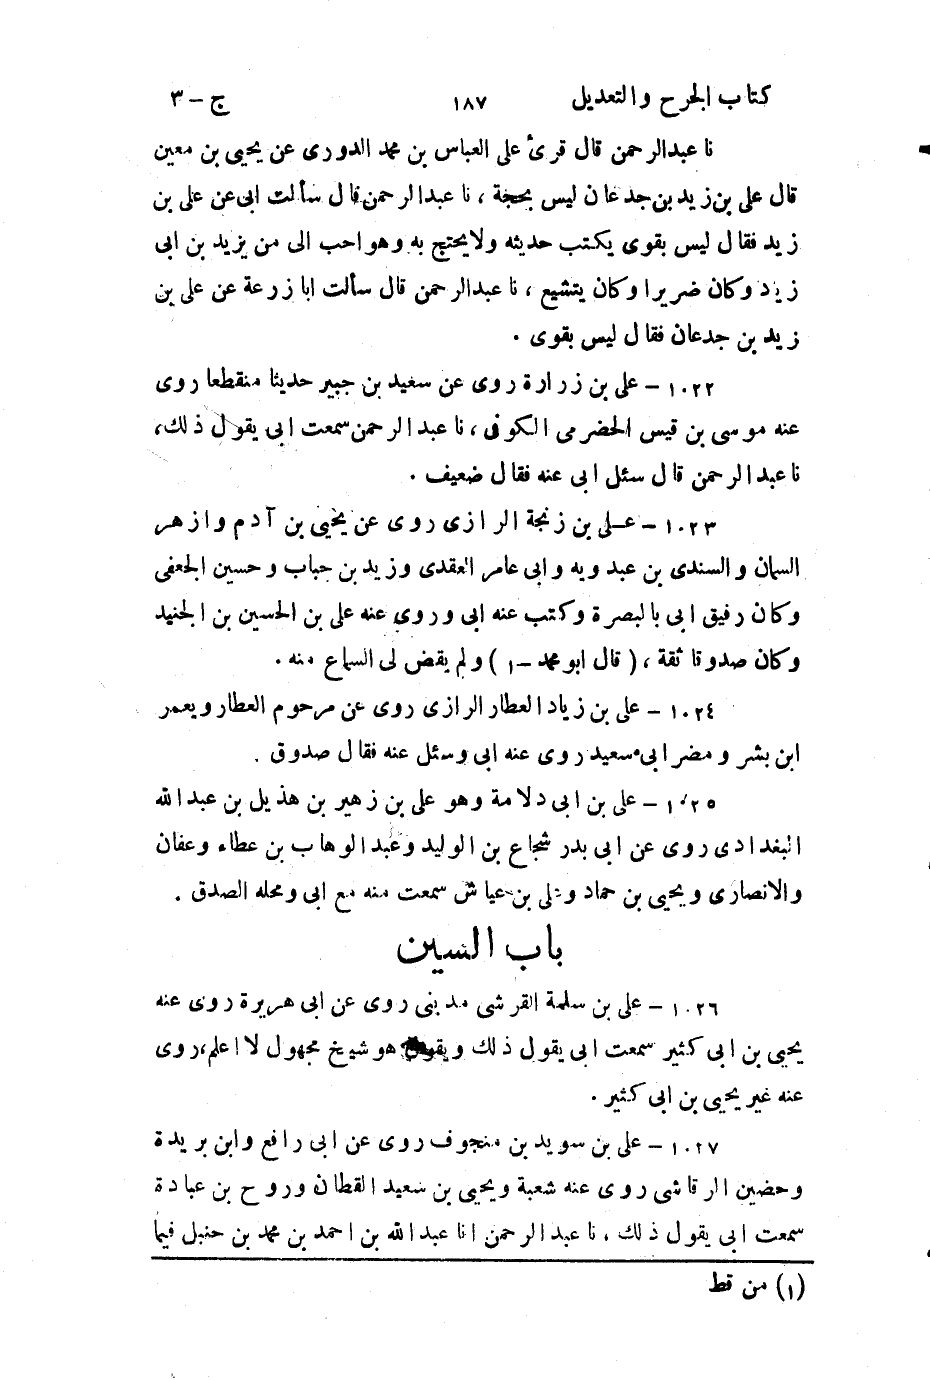 كتاب الجرح والتعديل ١٨٧ ج - ٣
نا عبدالرحمن قال قرئ على العباس بن محمد الدورى عن يحيى بن معين
قال على بن زيد بن جدعان ليس بحجة ، نا عبدالرحمن قال سألت ابى عن على بن
زيد فقال ليس بقوى يكتب حديثه ولا يحتج به وهو احب الى من يزيد بن ابى
زياد وكان ضريرا وكان يتشيع ، نا عبدالرحمن قال سألت ابا زرعة عن على بن
زيد بن جدعان فقال ليس بقوى .
١٠٢٢ - على بن زرارة روى عن سعيد بن جبير حديثا منقطعا روى
عنه موسى بن قيس الحضرمى الكوفى ، نا عبدالرحمن سمعت ابى يقول ذلك ،
نا عبدالرحمن قال سئل ابى عنه فقال ضعيف .
١٠٢٣ - على بن زنجة الرازى روى عن يحيى بن آدم وازهر
السمان والسندى بن عبدويه وابى عامر العقدى وزيد بن حباب وحسين الجعفى
وكان رفيق ابى بالبصرة وكتب عنه ابى وروى عنه على بن الحسين بن الجنيد
وكان صدوقا ثقة ، ( قال ابو محمد - ١ ) ولم يقض لى السماع منه .
١٠٢٤ - على بن زياد العطار الرازى روى عن مرحوم العطار ويعمر
ابن بشر ومضر ابى سعيد روى عنه ابى وسئل عنه فقال صدوق .
١٠٢٥ - على بن ابى دلامة وهو على بن زهير بن هذيل بن عبدالله
البغدادى روى عن ابى بدر شجاع بن الوليد وعبدالوهاب بن عطاء وعفان
والانصارى ويحيى بن حماد وعلى بن عياش سمعت منه مع ابى ومحله الصدق .
باب السين
١٠٢٦ - على بن سلمة القرشى مدينى روى عن ابى هريرة روى عنه
يحيى بن ابى كثير سمعت ابى يقول ذلك ويقول هو شيخ مجهول لا اعلم روى
عنه غير يحيى بن ابى كثير .
١٠٢٧ - على بن سويد بن منجوف روى عن ابى رافع وابن بريدة
وحضين الرقاشى روى عنه شعبة ويحيى بن سعيد القطان وروح بن عبادة
سمعت ابى يقول ذلك ، نا عبدالرحمن انا عبدالله بن احمد بن محمد بن حنبل فيما
(١) من قط